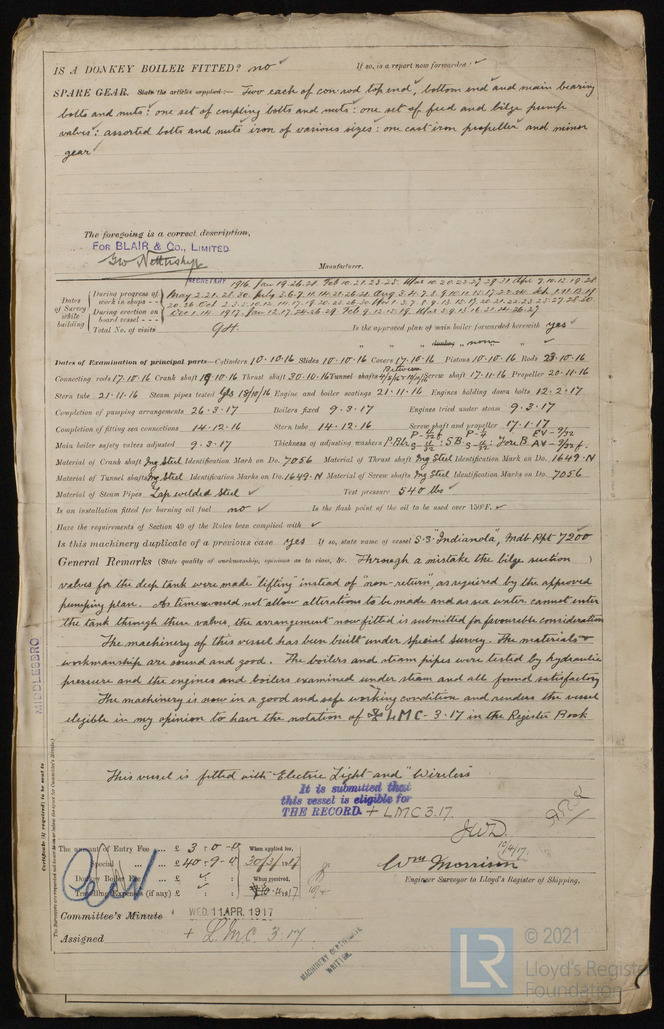 IS A DONKEY BOILER FITTED? no ✓ If so, is a report now forwarded. ✓
SPARE GEAR. State the articles supplied:— Two each of con rod top end, bottom end and main bearing
bolts and nuts: one set of coupling bolts and nuts: one set of feed and bilge pump
valves: assorted bolts and nuts iron of various sizes: one cast iron propeller and minor
gear
The foregoing is a correct description,
FOR BLAIR & CO., LIMITED
Manufacturer.
SECRETARY
Dates of Survey while building
During progress of work in shops --
During erection on board vessel ---
Total No. of visits
1916. Jan 19.26.28. Feb 10.21.23.25. Mar 10.20.23.27.29.31 Apr 7.10.13.19.28
Is the approved plan of main boiler forwarded herewith yes ✓
" " " donkey " none " ✓
Dates of Examination of principal parts—Cylinders 10.10.16 Slides 10.10.16 Covers 17.10.16 Pistons 10.10.16 Rods 23.10.16
Connecting rods 17.10.16 Crank shaft 19.10.16 Thrust shaft 30.10.16 Tunnel shafts Between Screw shaft 17.11.16 Propeller 20.11.16
Stern tube 21.11.16 Steam pipes tested Engine and boiler seatings 21.11.16 Engines holding down bolts 12.2.17
Completion of pumping arrangements 26.3.17 Boilers fixed 9.3.17 Engines tried under steam 9.3.17
Completion of fitting sea connections 14.12.16 Stern tube 14.12.16 Screw shaft and propeller 17.1.17
Main boiler safety valves adjusted 9.3.17 Thickness of adjusting washers
Material of Crank shaft Ing Steel Identification Mark on Do. 7056 Material of Thrust shaft Ing Steel Identification Mark on Do. 1649.N
Material of Tunnel shafts Ing Steel Identification Marks on Do. 1649.N Material of Screw shafts Ing Steel Identification Marks on Do. 7056
Material of Steam Pipes Lap welded Steel ✓ Test pressure 540 lbs ✓
Is an installation fitted for burning oil fuel no ✓ Is the flash point of the oil to be used over 150°F. ✓
Have the requirements of Section 49 of the Rules been complied with ✓
Is this machinery duplicate of a previous case yes If so, state name of vessel S.S. "Indianola", Mdb Rpt 7200
General Remarks (State quality of workmanship, opinions as to class, &c. Through a mistake the bilge suction
valves for the deep tank were made "lifting" instead of "non-return", as required by the approved
pumping plan. As time would not allow alterations to be made and as sea water cannot enter
the tank through these valves, the arrangement now fitted is submitted for favourable consideration
The machinery of this vessel has been built under special survey. The materials &
workmanship are sound and good. The boilers and steam pipes were tested by hydraulic
pressure and the engines and boilers examined under steam and all found satisfactory
The machinery is now in a good and safe working condition and renders the vessel
eligible in my opinion to have the notation of ✠ LMC-3.17 in the Register Book
This vessel is fitted with Electric Light and "Wireless
It is submitted that
this vessel is eligible for
THE RECORD. + LMC 3.17.
JWD
12/4/17.
The amount of Entry Fee ... £ 3 : 0 : 0 When applied for,
Special ... £ 40 : 9 : 0
Donkey Boiler Fee ... £ ✓ : : When received,
Travelling Expenses (if any) £ ✓ : :
Wm Morrison
Engineer Surveyor to Lloyd's Register of Shipping.
Committee's Minute WED. 11 APR. 1917
Assigned + LMC 3.17.
MACHINERY CERTIFICATE
WRITTEN.
MIDDLESBRO
© 2021
Lloyd's Register
Foundation
LR